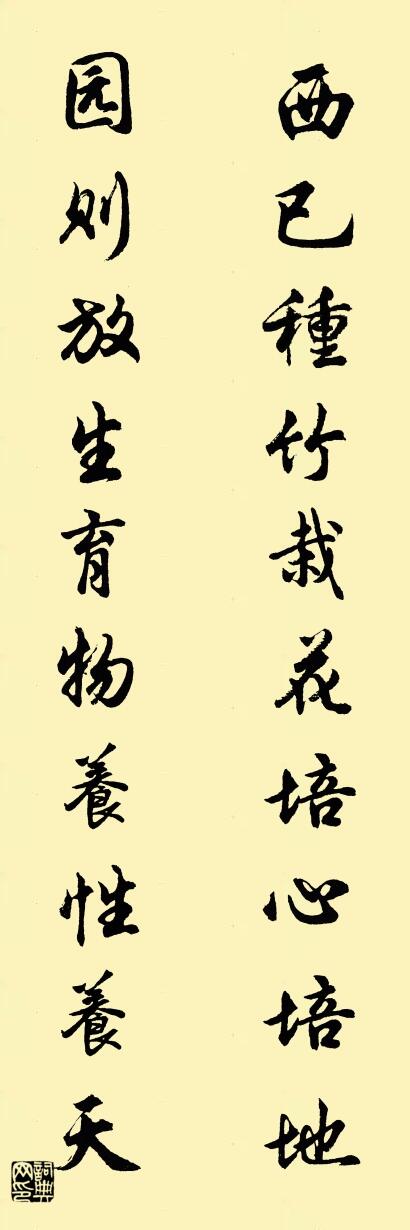 西已種竹栽花培心培地
园则放生育物養性養天
詞典网印